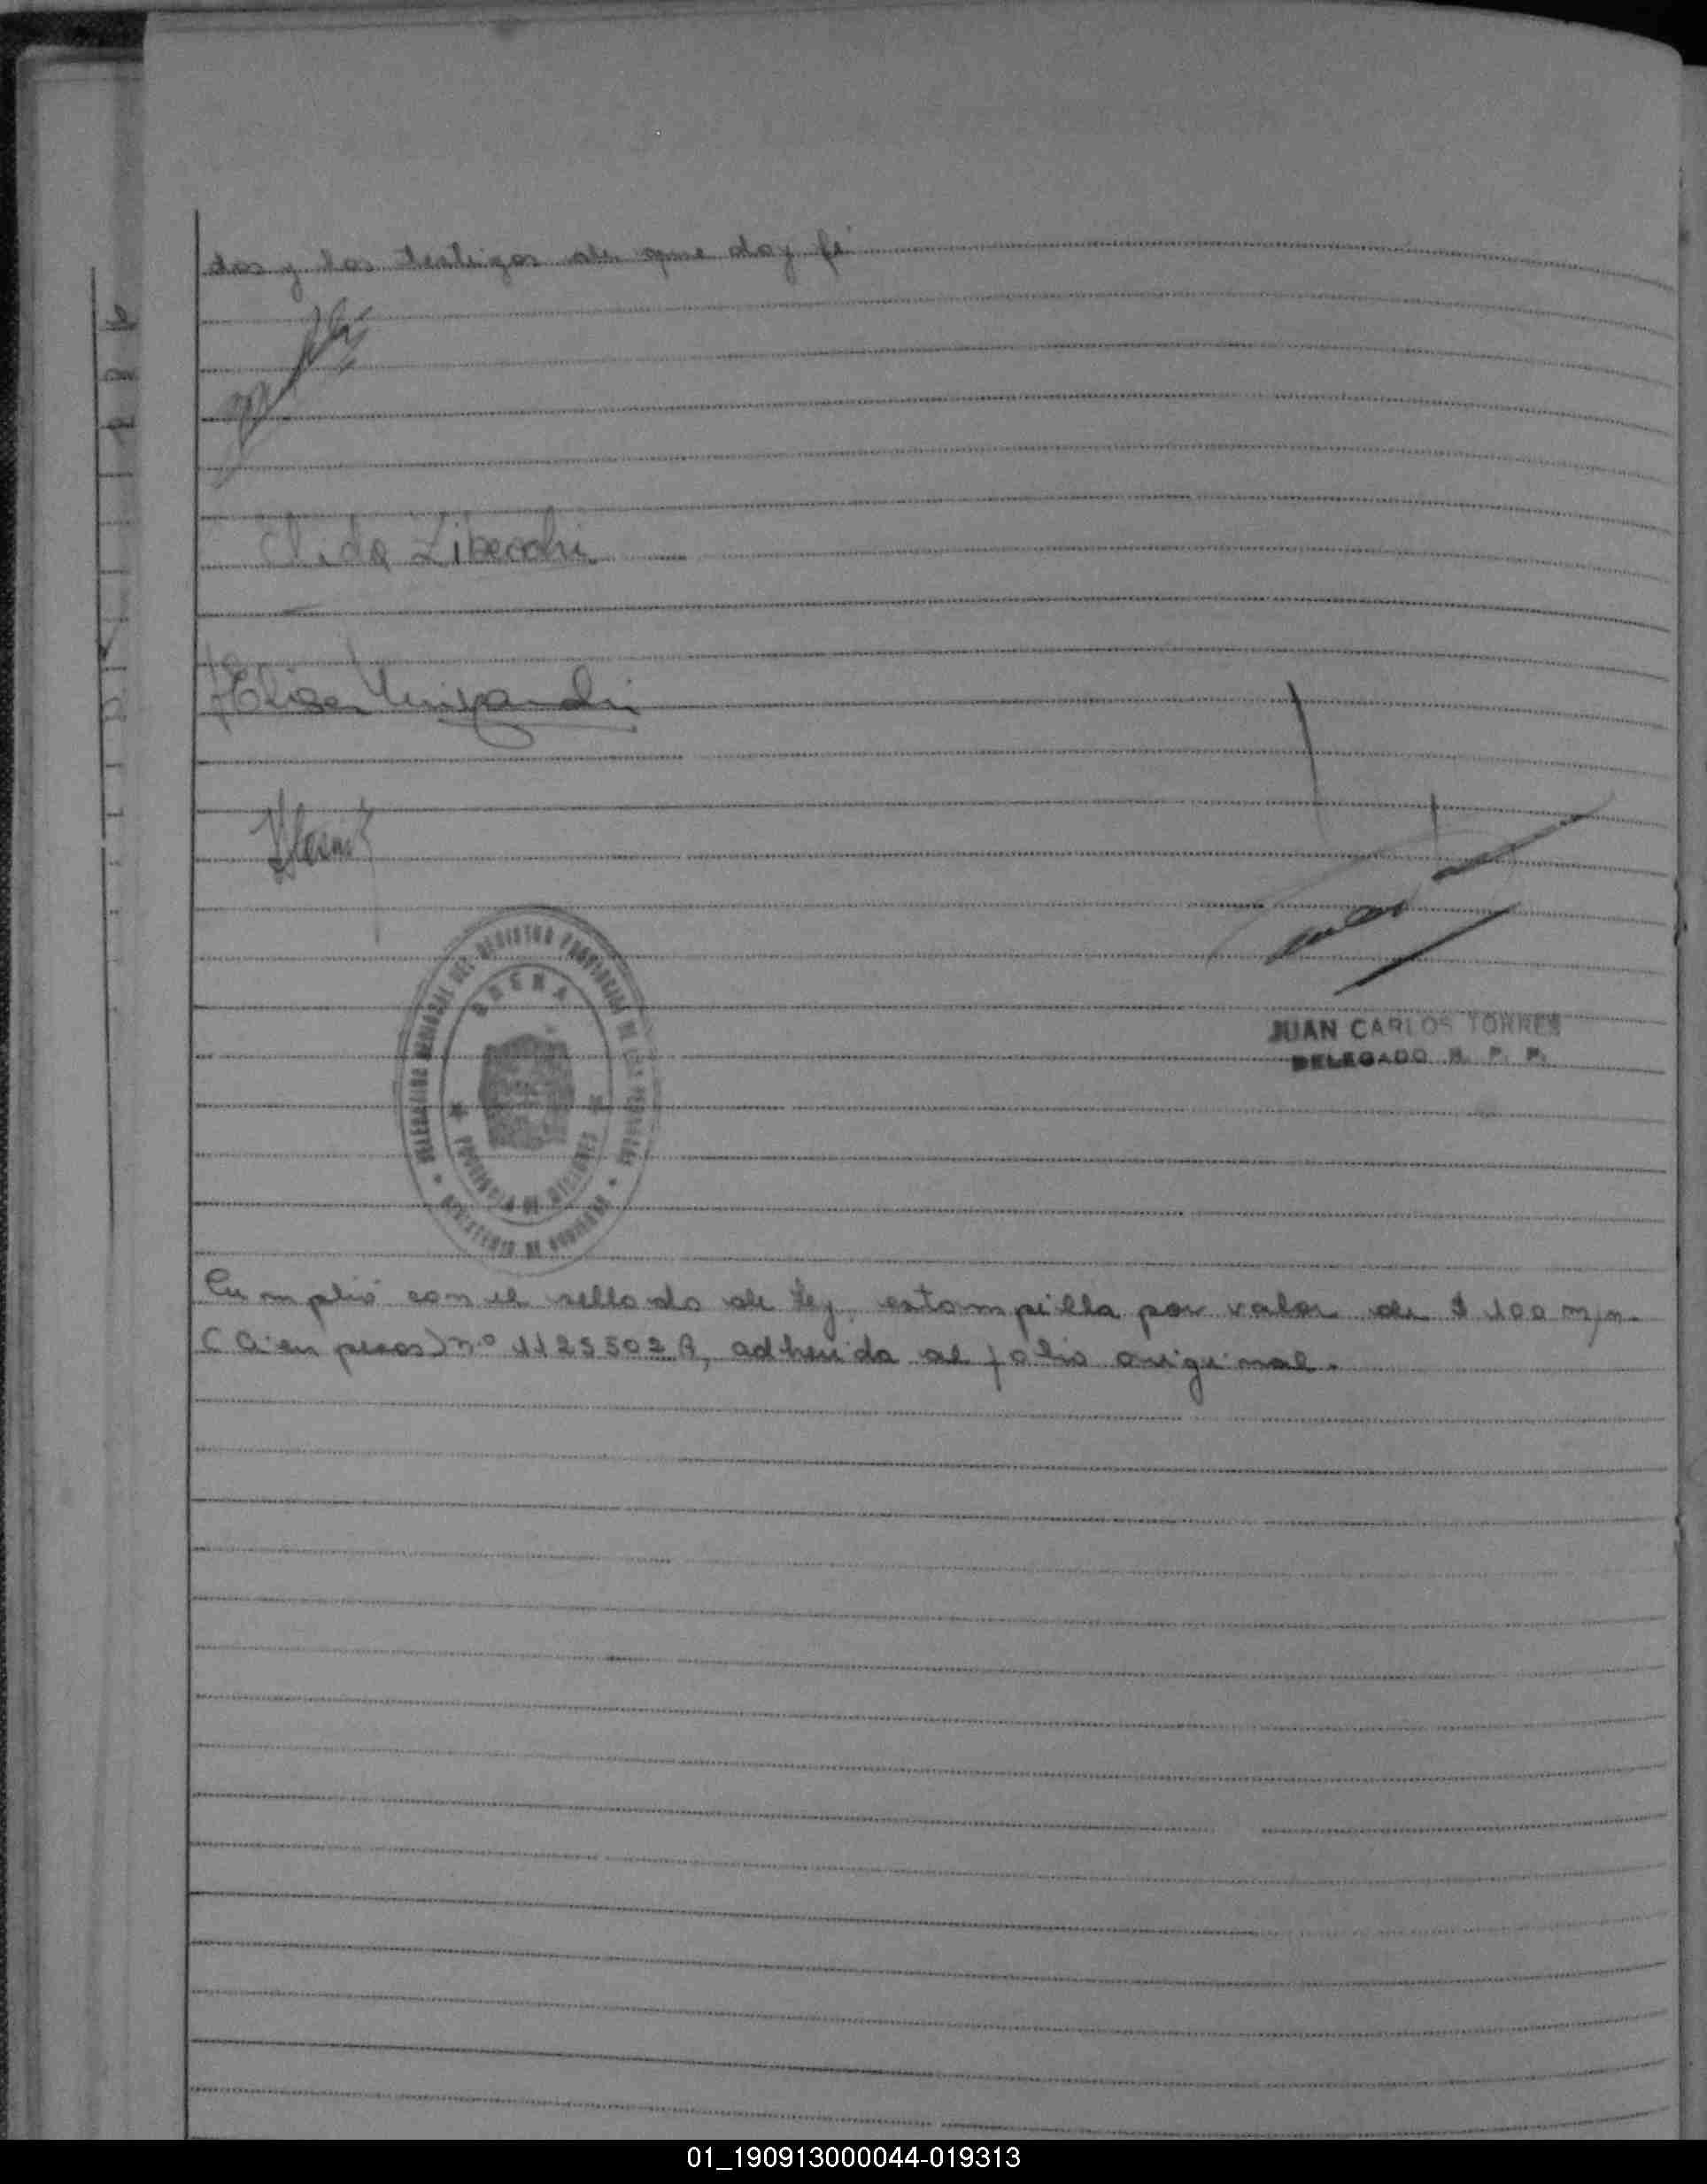 dos y los testigos de que doy fé
Elida Zibecchi
Elisa
DELEGACION REGIONAL DEL REGISTRO PROVINCIAL DE LAS PERSONAS
OBERA
PROVINCIA DE MISIONES
MINISTERIO DE GOBIERNO
JUAN CARLOS TORRES
DELEGADO R. P. P.
Cumplió con el sellado de Ley, estampilla por valor de $ 100 m/n.
(Cien pesos) nº 1123502 A, adherida al folio original.
01_190913000044-019313